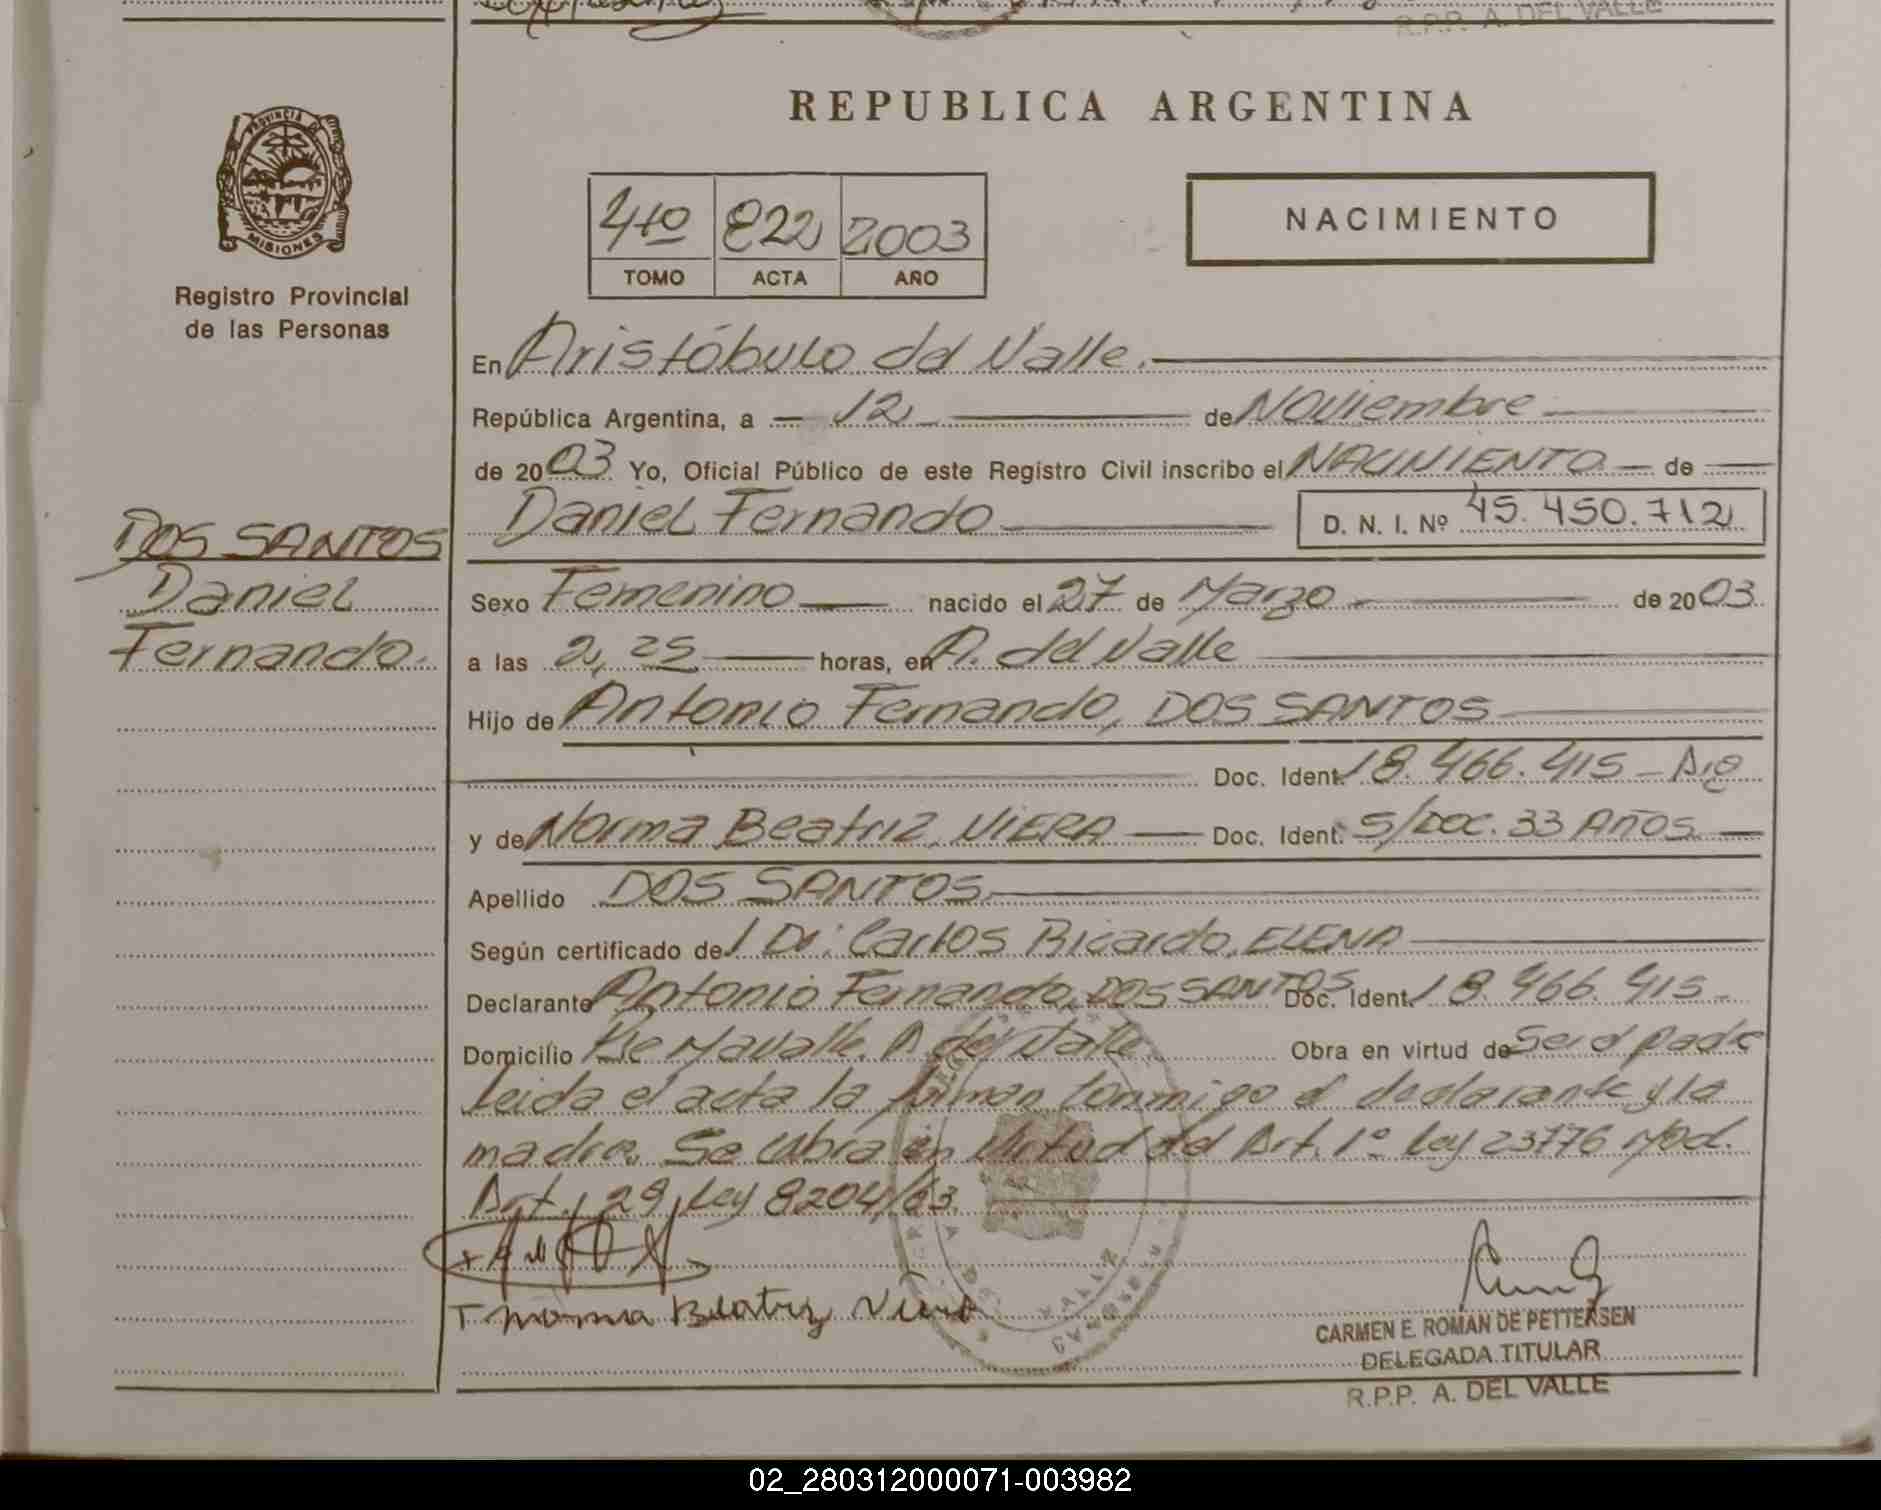 R.P.P. A. DEL VALLE
REPUBLICA ARGENTINA
PROVINCIA DE
MISIONES
Registro Provincial
de las Personas
4to 822 2003
TOMO ACTA AÑO
NACIMIENTO
En Aristóbulo del Valle.
República Argentina, a 12 de Noviembre
de 2003 Yo, Oficial Público de este Registro Civil inscribo el NACIMIENTO de
Daniel Fernando D. N. I. Nº 45.450.712
DOS SANTOS
Daniel
Fernando.
Sexo Femenino nacido el 27 de Marzo de 2003
a las 2,25 horas, en A. del Valle
Hijo de Antonio Fernando, DOS SANTOS
Doc. Ident. 18.466.415 -
y de Norma Beatriz, VIERA Doc. Ident. S/DOC. 33 AÑOS
Apellido DOS SANTOS
Según certificado de Dr. Carlos Ricardo, ELENA
Declarante Antonio Fernando, DOS SANTOS Doc. Ident. 18.466.415 -
Domicilio A. del Valle Obra en virtud de Ser el padre
Leida el acta la firman conmigo el declarante y la
madre. Se labra en virtud del Art. 1º Ley 23776 Mod.
Art. 29 Ley 8204/63.
Norma Beatriz Viera
CARMEN E. ROMAN DE PETTERSEN
DELEGADA TITULAR
R.P.P. A. DEL VALLE
02_280312000071-003982